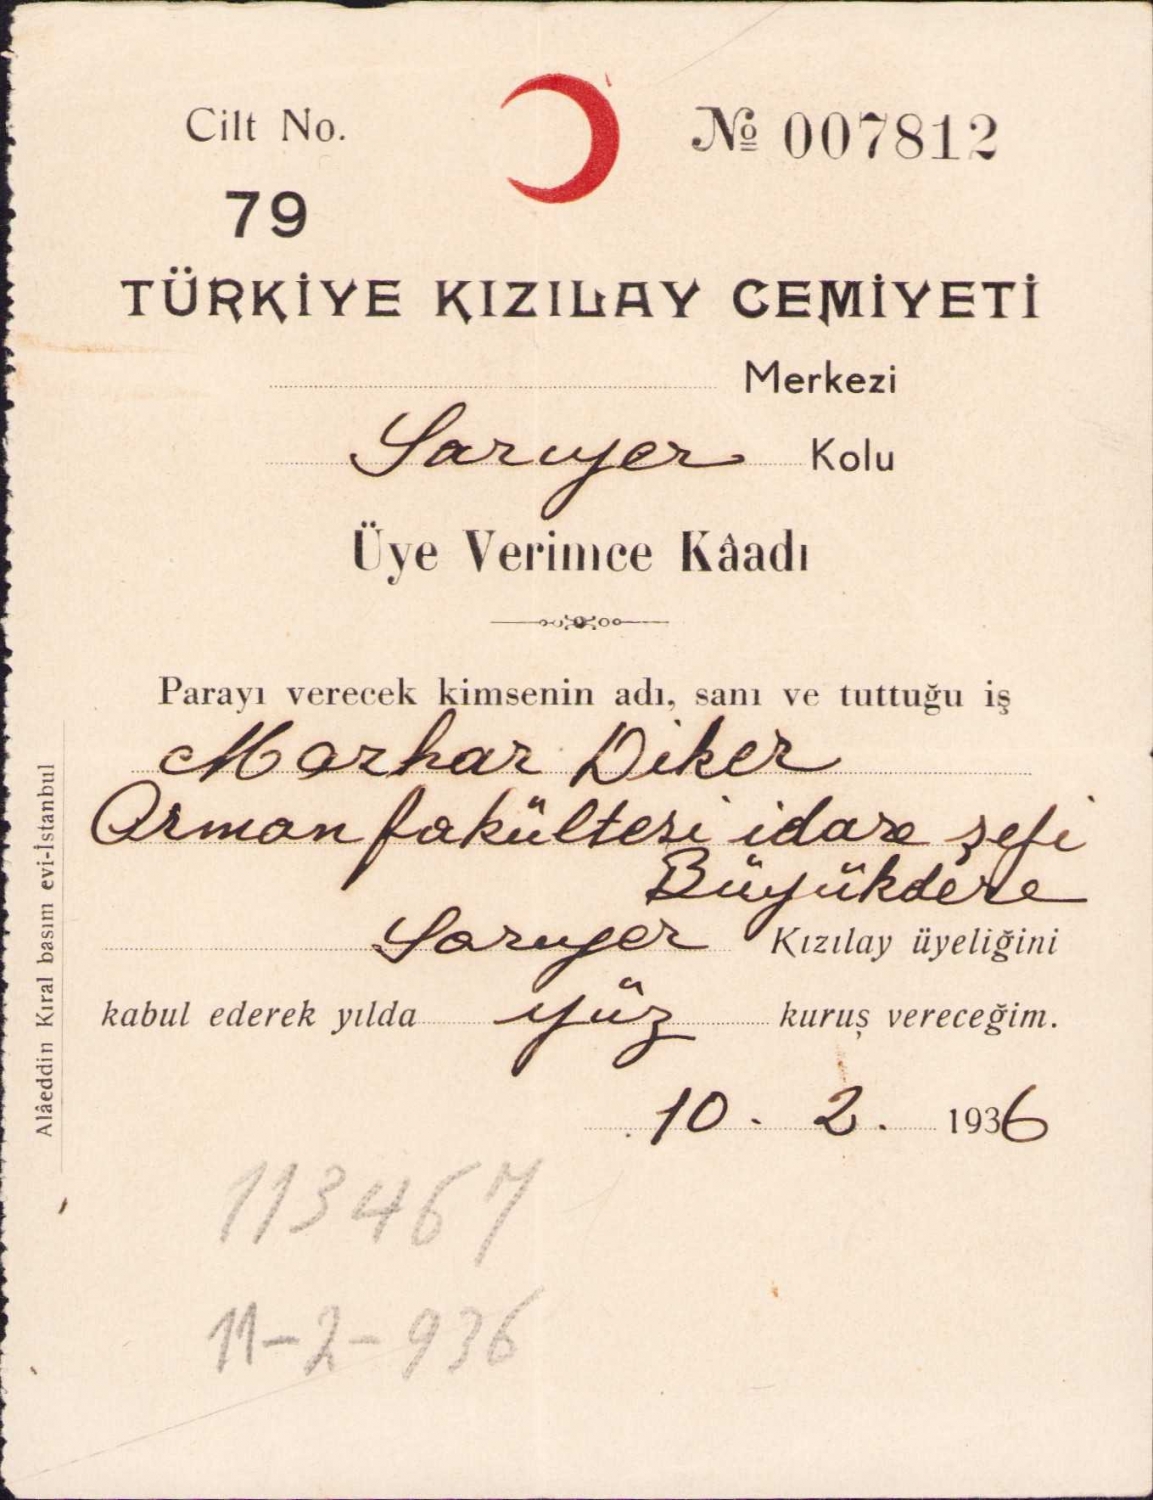 Cilt No.
№ 007812
79
TÜRKİYE KIZILAY CEMİYETİ
Merkezi
Sarıyer Kolu
Üye Verimce Kâadı
Parayı verecek kimsenin adı, sanı ve tuttuğu iş
Mazhar Diker
Orman fakültesi idare şefi
Büyükdere
Sarıyer Kızılay üyeliğini
kabul ederek yılda yüz kuruş vereceğim.
10. 2. 1936
113467
11-2-936
Alâeddin Kıral basım evi-İstanbul